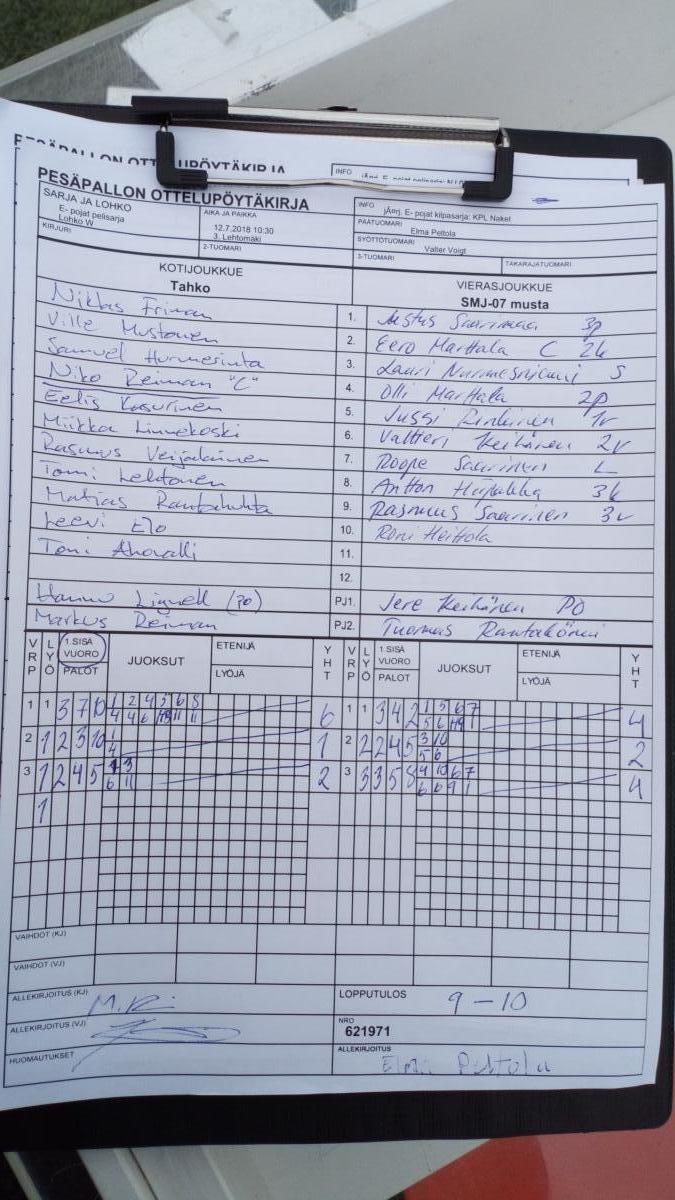 PESÄPALLON OTTELUPÖYTÄKIRJA
INFO
PESÄPALLON OTTELUPÖYTÄKIRJA
SARJA JA LOHKO
E- pojat pelisarja
Lohko W
AIKA JA PAIKKA
12.7.2018 10:30
3. Lehtomäki
INFO
jÄrrj. E- pojat kilpasarja: KPL Naket
PÄÄTUOMARI
Elma Peltola
SYÖTTÖTUOMARI
Valter Voigt
KIRJURI
2-TUOMARI
3-TUOMARI
TAKARAJATUOMARI
KOTIJOUKKUE
Tahko
VIERASJOUKKUE
SMJ-07 musta
Niklas Friman 1. Justus Saarimaa 3p
Ville Mustonen 2. Eero Marttala C 2k
Samuel Hurmerinta 3. Lauri Nurmesniemi S
Niko Reiman "C" 4. Olli Marttala 2p
Eelis Kasurinen 5. Jussi 1v
Miikka Linnekoski 6. Valtteri Keihänen 2v
Rasmus Veijalainen 7. Roope Saarinen L
Tomi Lehtonen 8. Antton 3k
Matias Rantahuhta 9. Rasmus Saarinen 3v
Leevi Elo 10. Roni Heittola
Toni Ahovalli 11.
12.
Hannu Lignell (PO) PJ1. Jere Keihänen PO
Markus Reiman PJ2. Tuomas
VRP LYÖ 1.SISÄ VUORO PALOT JUOKSUT ETENIJÄ LYÖJÄ YHT VRP LYÖ 1.SISÄ VUORO PALOT JUOKSUT ETENIJÄ LYÖJÄ YHT
1 1 3 7 10 1 2 4 5 6 8 6 1 1 3 4 2 1 5 6 7 4
4 4 6 11 11 5 6 1
2 1 2 3 10 1 1 2 2 2 4 5 3 10 2
4 5 6
3 1 2 4 5 1 3 2 3 3 3 5 8 4 10 6 7 4
6 11 6 6 9 1
1
VAIHDOT (KJ)
VAIHDOT (VJ)
ALLEKIRJOITUS (KJ)
LOPPUTULOS 9 - 10
ALLEKIRJOITUS (VJ)
NRO
621971
HUOMAUTUKSET
ALLEKIRJOITUS
Elma Peltola